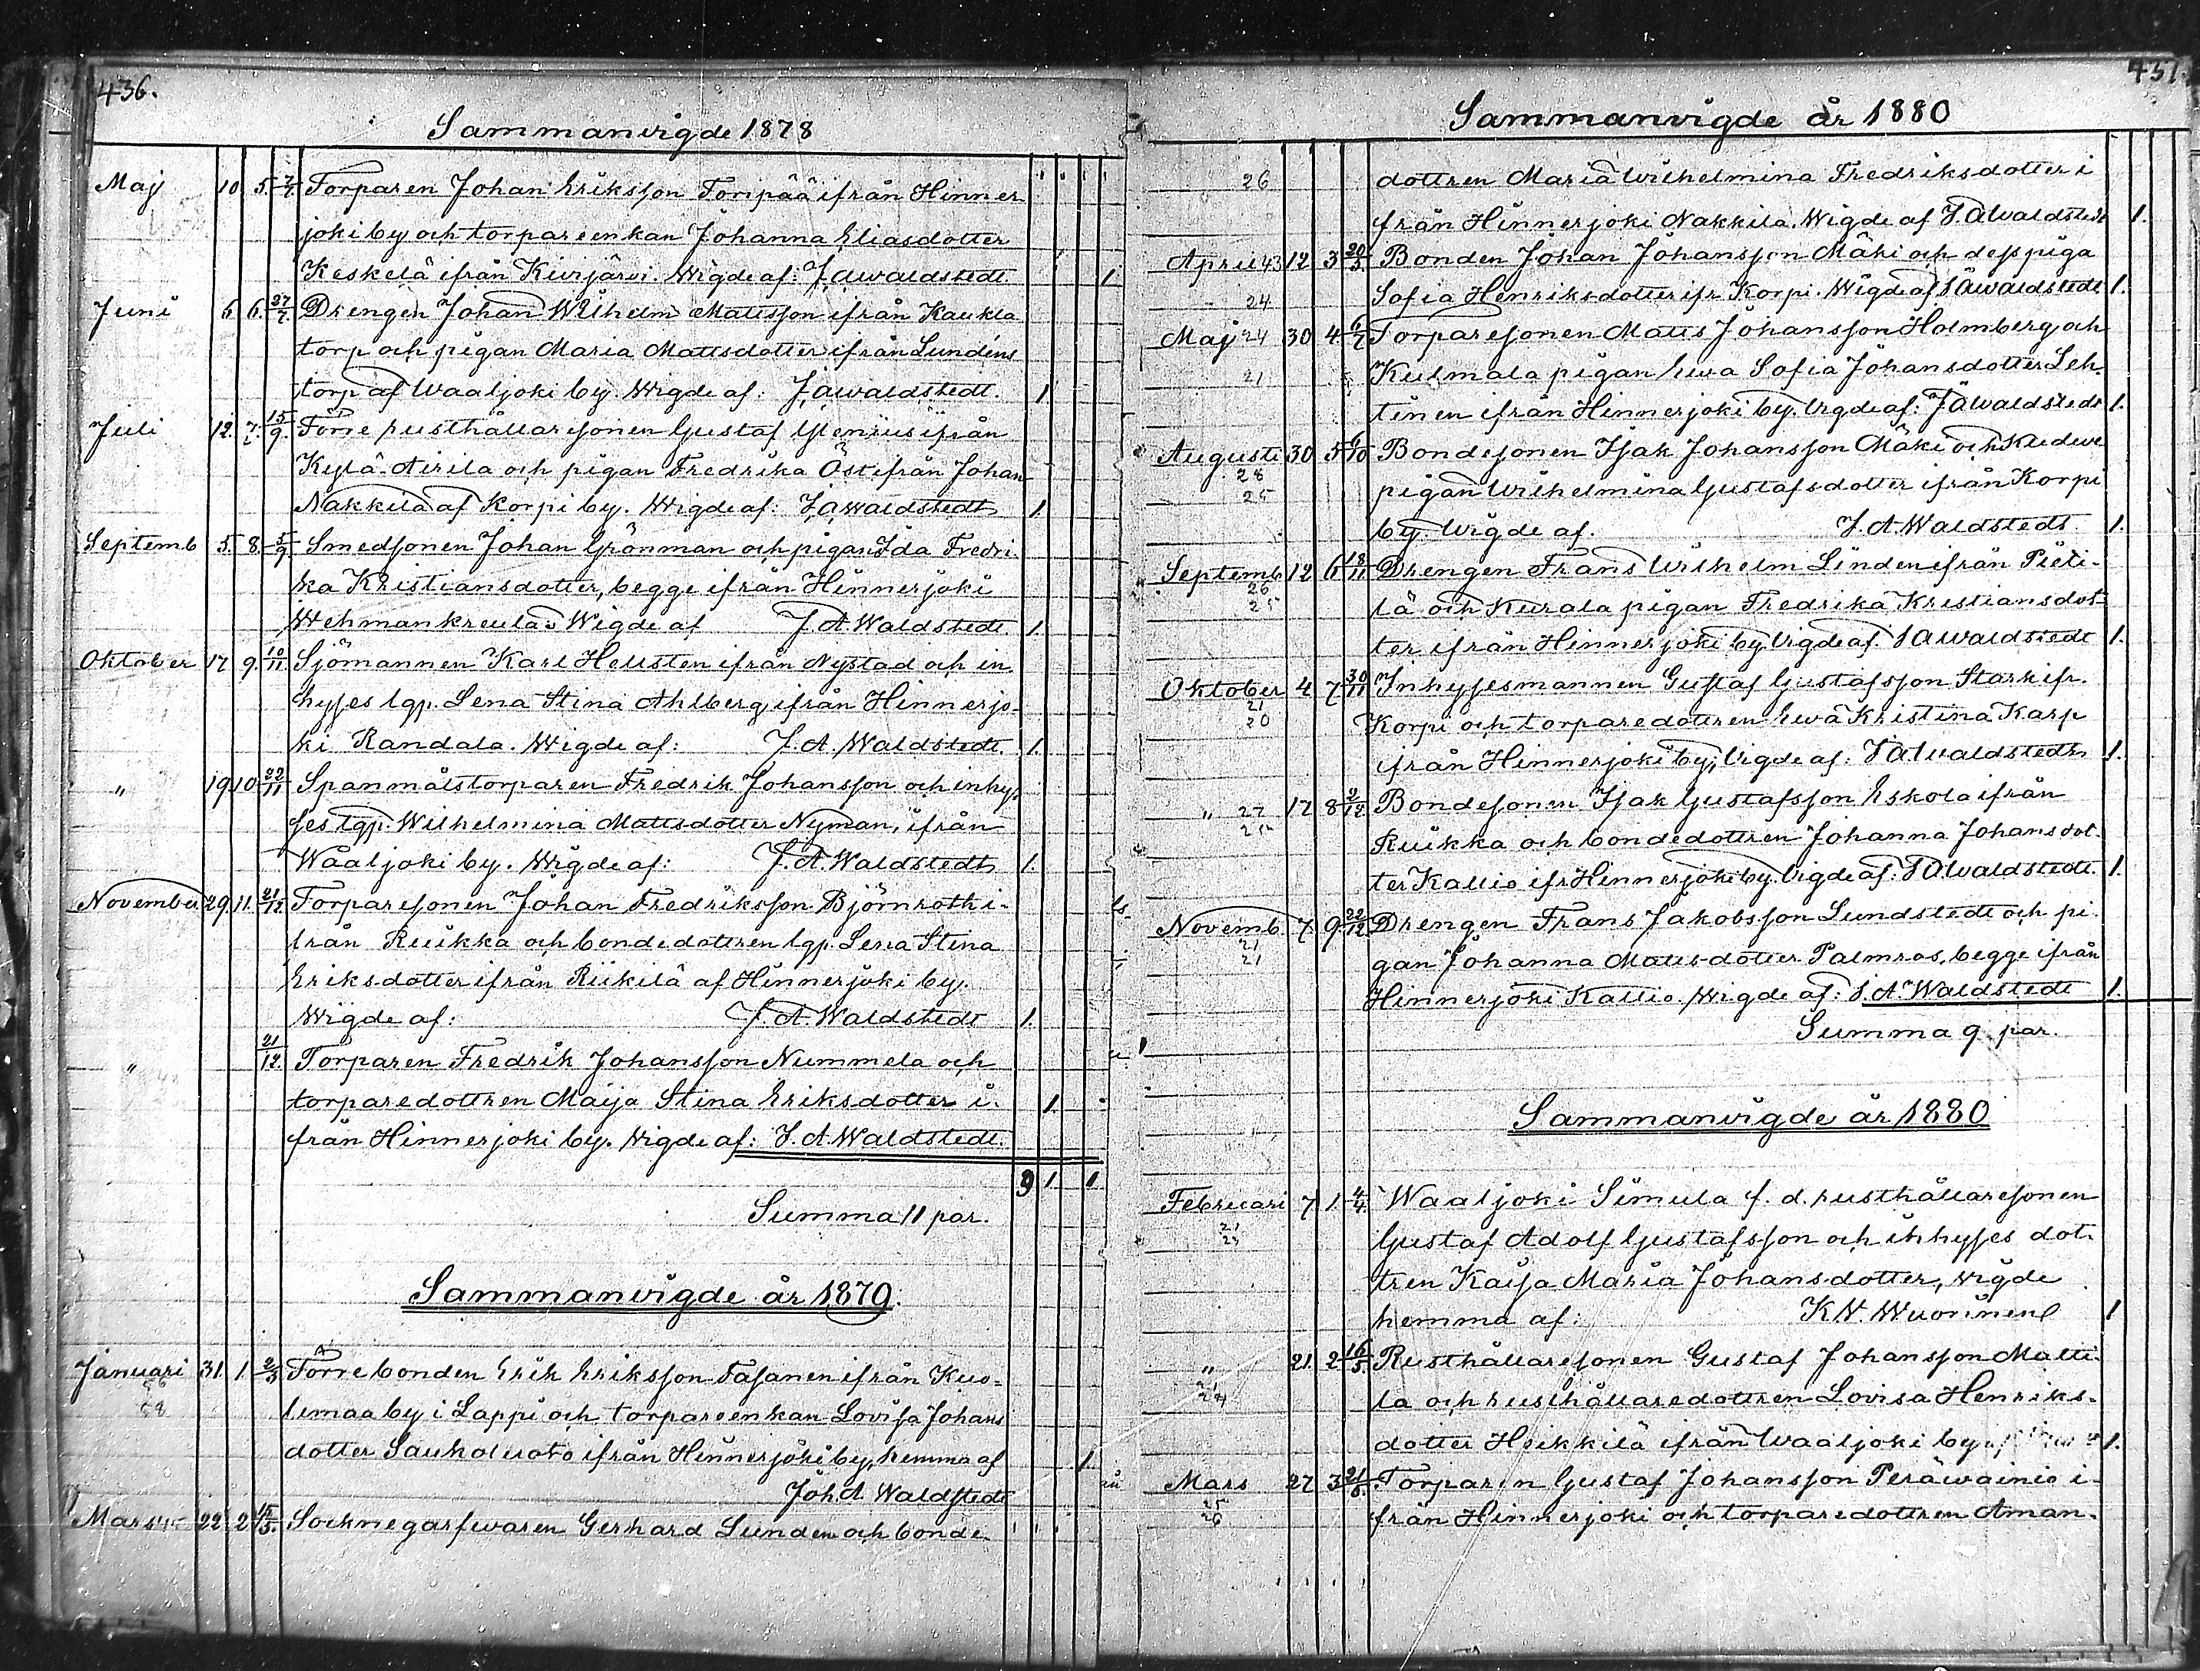 436.
Sammanvigde 1878
Maj 10. 5. 7/7. Torparen Johan Eriksson Toripää ifrån Hinner
joki by och torpareenkan Johanna Eliasdotter
Keskelä ifrån Kivijärvi. Wigde af: J A Waldstedt. 1.
Juni 6 6. 27/7. Drengen Johan Wilhelm Mattsson ifrån Kaukla
torp och pigan Maria Mattsdotter ifrån Lundéns
torp af Waaljoki by. Wigde af: J A Waldstedt. 1
Juli 12. 7. 15/9. Förre rusthållaresonen Gustaf Glenius ifrån
Kylä-Airila och pigan Fredrika Öst ifrån Johan
Nakkila af Korpi by. Wigde af: J A Waldstedt 1.
Septemb 5. 8. 5/9. Smedsonen Johan Grönman och pigan Ida Fredri-
ka Kristiansdotter, begge ifrån Hinnerjoki
Wehmankreula. Wigde af J. A. Waldstedt. 1.
Oktober 17 9. 10/11. Sjömannen Karl Hellsten ifrån Nystad och in
hyses lgp. Lena Stina Ahlberg ifrån Hinnerjo-
ki Randala. Wigde af: J. A. Waldstedt. 1.
" 19 10. 22/11 Spanmålstorparen Fredrik Johansson och inhy-
ses lgp. Wilhelmina Mattsdotter Nyman, ifrån
Waaljoki by. Wigde af: J. A. Waldstedt 1.
November 29. 11. 21/12. Torparesonen Johan Fredriksson Björnroth i-
från Ruikka och bondedottren lgp. Lena Stina
Eriksdotter ifrån Riikilä af Hinnerjoki by.
Wigde af: J. A. Waldstedt 1.
" 21/12. Torparen Fredrik Johansson Nummela och
torparedottren Maija Stina Eriksdotter i- 1.
från Hinnerjoki by. Wigde af: J. A. Waldstedt.
9 1. 1
Summa 11 par.
Sammanvigde år 1879.
Januari 31. 1. 2/3 Förre bonden Erik Eriksson Fasanen ifrån Kuo-
limaa by i Lappi och torpareenkan Lovisa Johans
dotter Sauholuoto ifrån Hinnerjoki by, hemma af 1.
Joh. A. Waldstedt
Mars 22. 2 15/5. Socknegarfvaren Gerhard Lunden och bonde
437.
Sammanvigde år 1880
26 dottren Maria Wilhelmina Fredriksdotter i
från Hinnerjoki Nakkila. Wigde af J. A Waldstedt 1.
April 43 12 3 20/5 Bonden Johan Johansson Mäki och dess piga
24 Sofia Henriksdotter ifr. Korpi. Wigde af J A Waldstedt 1.
Maj 24 30 4. 6/7 Torparesonen Matts Johansson Holmberg och
21 Kulmala pigan Ewa Sofia Johansdotter Leh-
tinen ifrån Hinnerjoki by. Vigde af: J A Waldstedt 1.
Augusti 30 5 6/10 Bondesonen Isak Johansson Mäki och
28
25 pigan Wilhelmina Gustafsdotter ifrån Korpi
by. Wigde af. J. A. Waldstedt. 1.
Septemb 12 6 18/11 Drengen Frans Wilhelm Linden ifrån Pieti-
26
25 lä och Kurala pigan Fredrika Kristiansdot-
ter ifrån Hinnerjoki by. Vigde af. J A Waldstedt 1.
Oktober 4 7 30/11 Inhysesmannen Gustaf Gustafsson Stark ifr.
21
20 Korpi och torparedottren Ewa Kristina Karp
ifrån Hinnerjoki by, Vigde af: J A Waldstedt. 1.
" 27 17 8 2/12 Bondesonen Isak Gustafsson Eskola ifrån
Ruikka och bondedottren Johanna Johansdot-
ter Kallio ifr. Hinnerjoki by. Vigde af: J A Waldstedt. 1.
Novemb. 7. 9. 22/12. Drengen Frans Jakobsson Lundstedt och pi-
21
21 gan Johanna Mattsdotter Palmros, begge ifrån
Hinnerjoki Kallio. Wigde af: J. A. Waldstedt 1.
Summa 9. par.
Sammanvigde år 1880
Februari 7 1. 4/4. Waaljoki Simula f. d. rusthållaresonen
21
23 Gustaf Adolf Gustafsson och inhyses dot-
tren Kaija Maria Johansdotter, vigde
hemma af: K. W. Wuorinen 1
" 21. 2 16/5. Rusthållaresonen Gustaf Johansson Matti-
21
24 la och rusthållaredottren Lovisa Henriks-
dotter Heikkilä ifrån Waaljoki by 1.
Mars 27 3 21/5. Torparen Gustaf Johansson Peräwainio i-
25
26 från Hinnerjoki och torparedottren Aman-